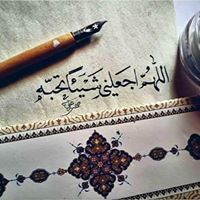 اللهم اجعلني شيئًا تحبه